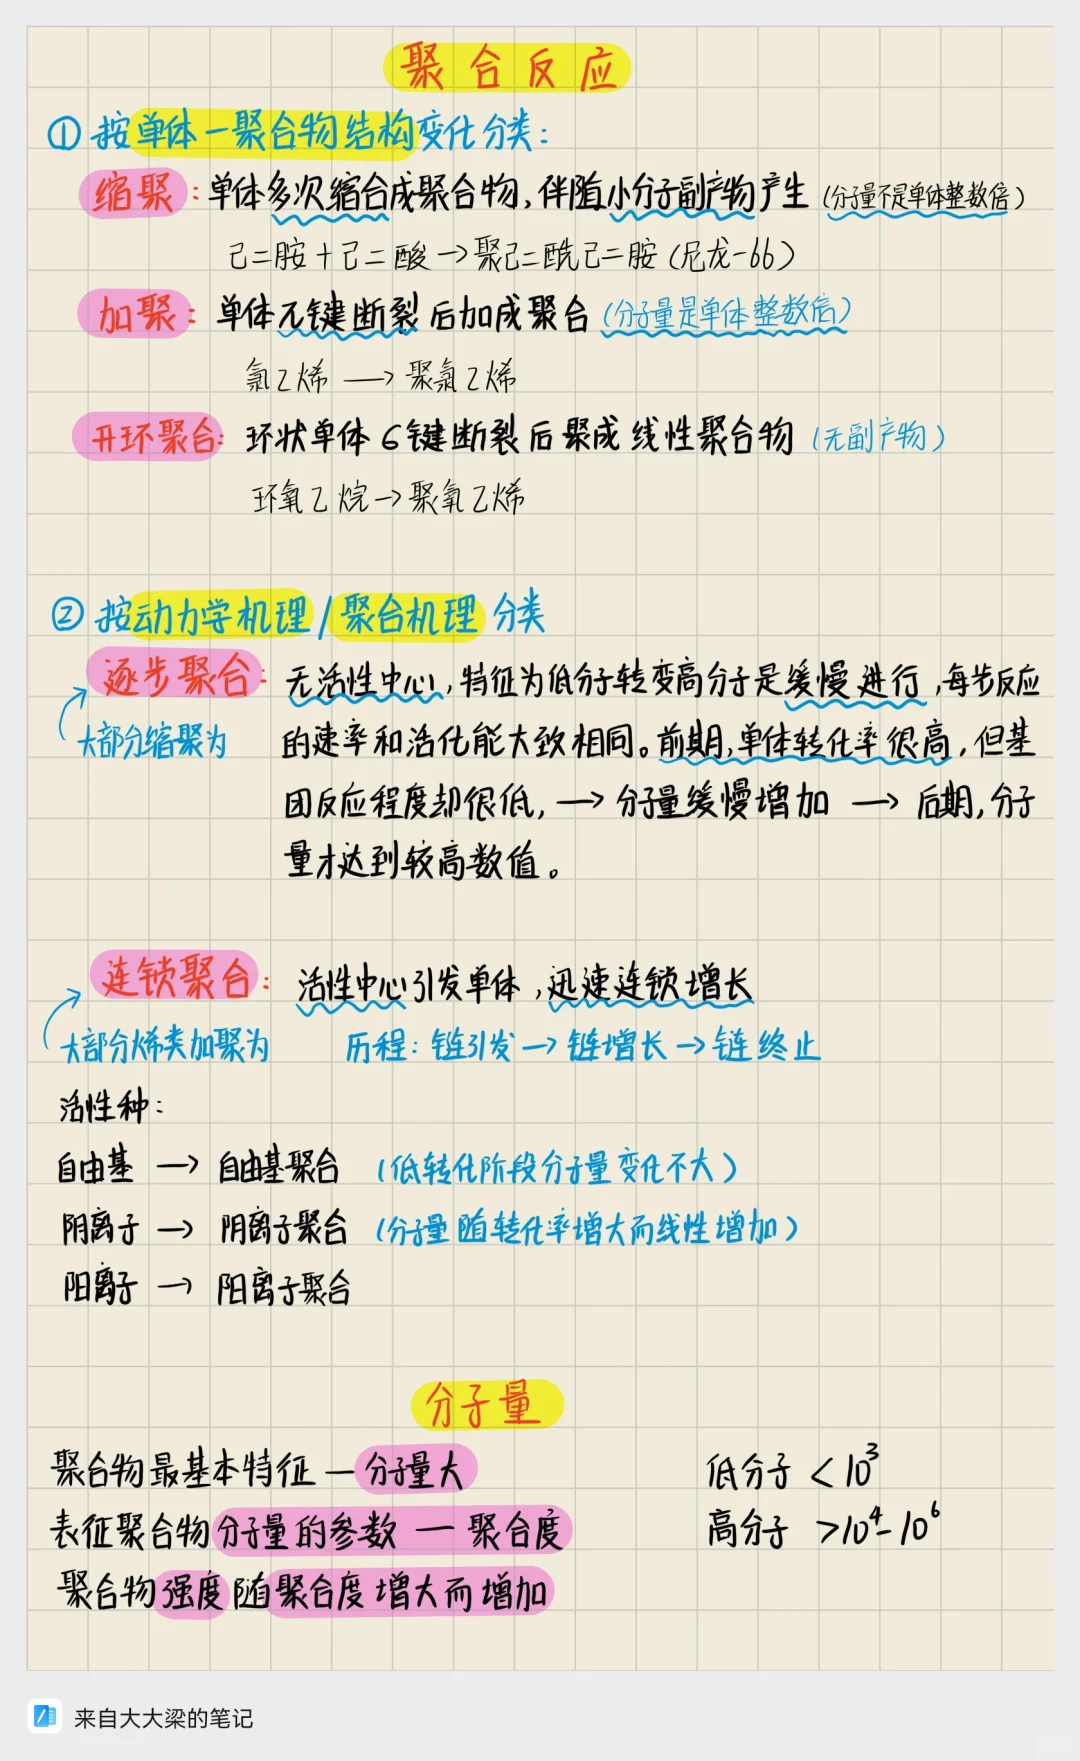 聚合反应
① 按单体-聚合物结构变化分类:
缩聚:单体多次缩合成聚合物,伴随小分子副产物产生(分子量不是单体整数倍)
己二胺+己二酸→聚己二酰己二胺(尼龙-66)
加聚:单体π键断裂后加成聚合(分子量是单体整数倍)
氯乙烯→聚氯乙烯
开环聚合:环状单体6键断裂后聚成线性聚合物(无副产物)
环氧乙烷→聚氧乙烯
② 按动力学机理/聚合机理分类
逐步聚合:无活性中心,特征为低分子转变高分子是缓慢进行,每步反应
大部分缩聚为 的速率和活化能大致相同。前期,单体转化率很高,但基
团反应程度却很低,→分子量缓慢增加→后期,分子
量才达到较高数值。
连锁聚合:活性中心引发单体,迅速连锁增长
大部分烯类加聚为 历程:链引发→链增长→链终止
活性种:
自由基→自由基聚合(低转化阶段分子量变化不大)
阴离子→阴离子聚合(分子量随转化率增大而线性增加)
阳离子→阳离子聚合
分子量
聚合物最基本特征—分子量大 低分子<10³
表征聚合物分子量的参数—聚合度 高分子>10⁴-10⁶
聚合物强度随聚合度增大而增加
来自大大梁的笔记